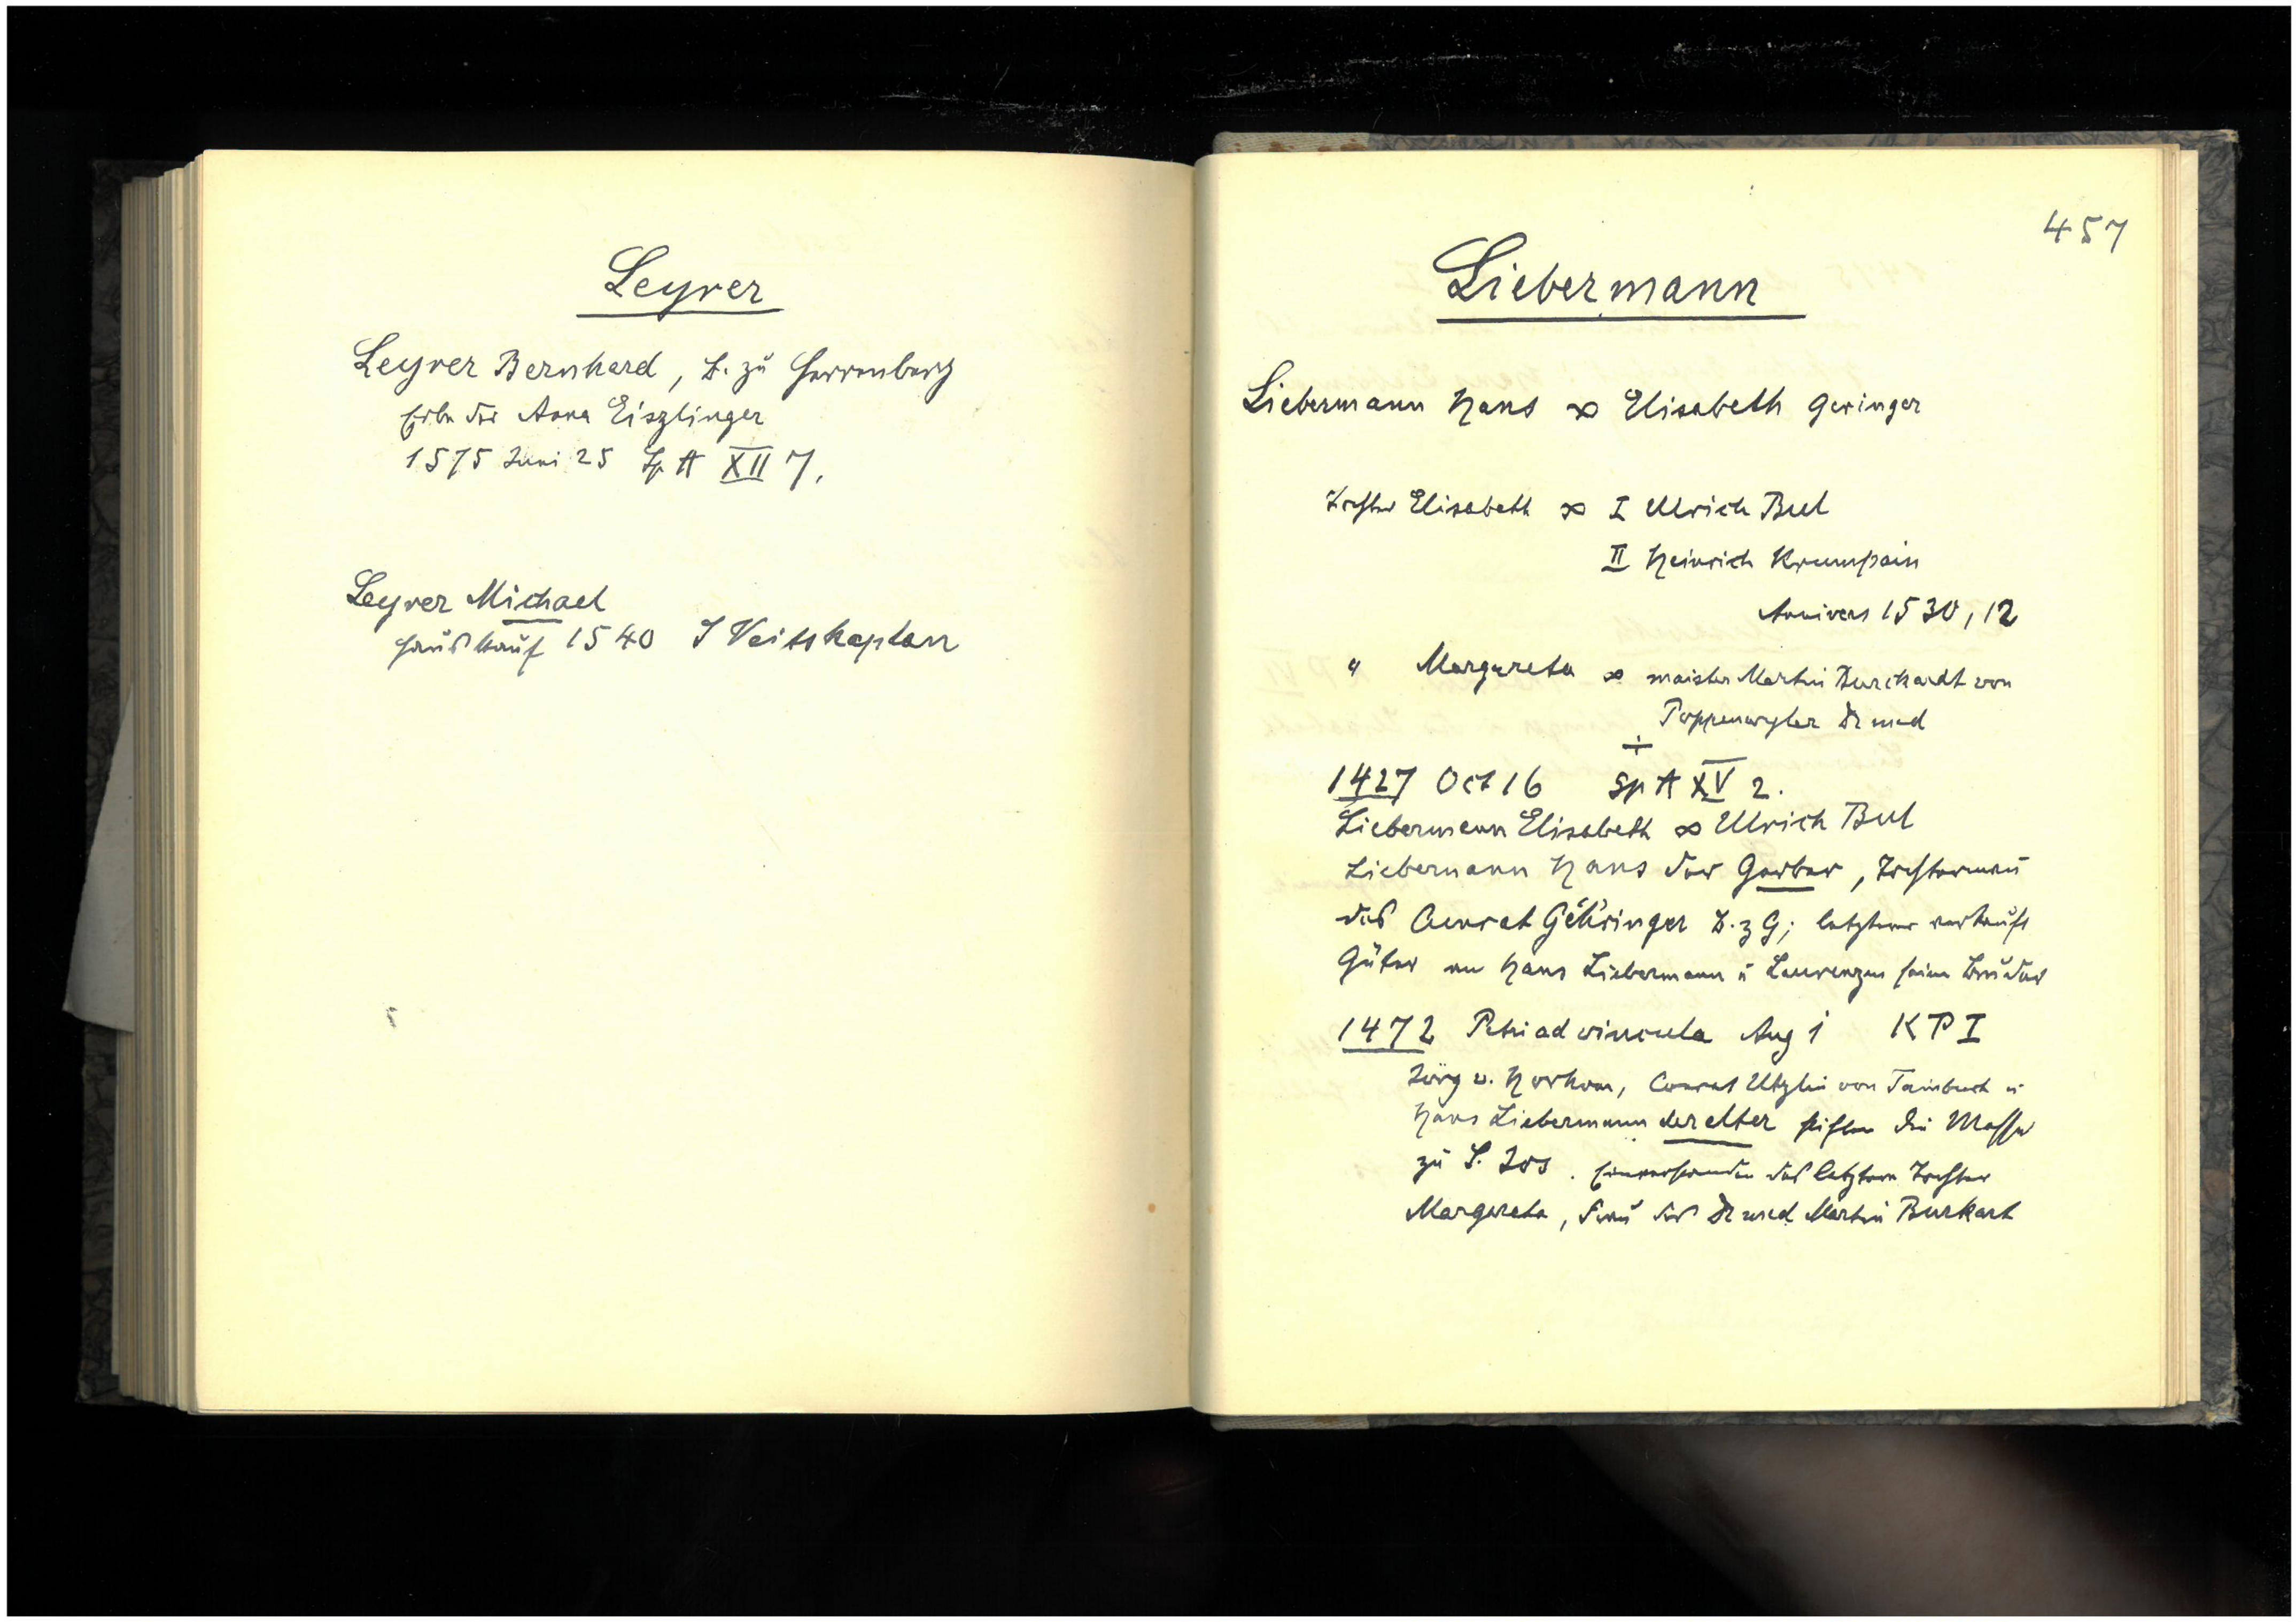 Leyrer
Leyrer Bernhard, B. zu Herrenberg
Erbe der Anna Eiszlinger
1575 Juni 25 Sp A XII 7.
Leyrer Michael
Hauskauf 1540 S Veitskaplan
457
Liebermann
Liebermann Hans ∞ Elisabeth Geringer
Tochter Elisabeth ∞ I Ulrich Bul
II Heinrich Krumpain
Annivers 1530, 12
" Margareta ∞ maister Martin Burckardt von
Poppenwyler Dr med
÷
1427 Oct 16 Sp A XV 2.
Liebermann Elisabeth ∞ Ulrich Bul
Liebermann Hans der Gerber, Tochtermann
des Conrat Gehringer B. z G; letzterer verkauft
Güter an Hans Liebermann u Laurenzen seim Bruder
1472 Petri ad vincula Aug 1 KPI
Jörg v. Horkom, Conrat Utzlin von Tainbuch u
Hans Liebermann der elter stiften die Messe
zu S. Jos. Einverstanden des letztern Tochter
Margareta, Frau des Dr med Martin Burkart